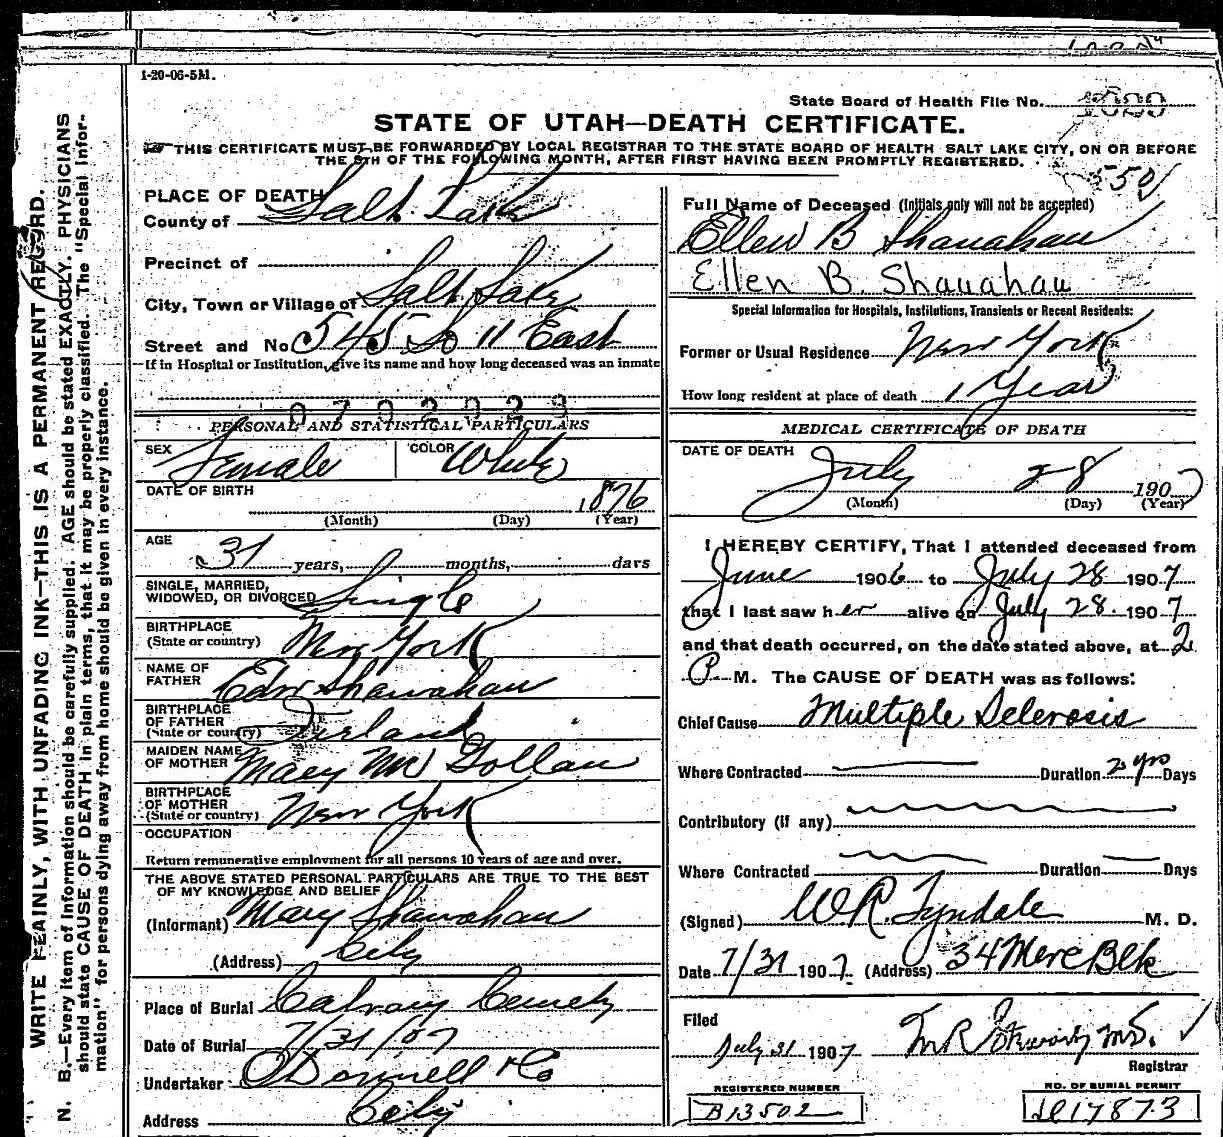 1-20-06-5M.
State Board of Health File No.
STATE OF UTAH—DEATH CERTIFICATE.
THIS CERTIFICATE MUST BE FORWARDED BY LOCAL REGISTRAR TO THE STATE BOARD OF HEALTH SALT LAKE CITY, ON OR BEFORE
THE 5TH OF THE FOLLOWING MONTH, AFTER FIRST HAVING BEEN PROMPTLY REGISTERED.
550
WRITE PLAINLY, WITH UNFADING INK—THIS IS A PERMANENT RECORD.
N. B.—Every item of Information should be carefully supplied. AGE should be stated EXACTLY. PHYSICIANS
should state CAUSE OF DEATH in plain terms, that it may be properly classified. The "Special Infor-
mation" for persons dying away from home should be given in every instance.
PLACE OF DEATH
County of Salt Lake
Precinct of
City, Town or Village of Salt Lake
Street and No. 545 So 11 East
If in Hospital or Institution, give its name and how long deceased was an inmate
0702029
PERSONAL AND STATISTICAL PARTICULARS
SEX Female COLOR White
DATE OF BIRTH 1876
(Month) (Day) (Year)
AGE 31 years, months, days
SINGLE, MARRIED,
WIDOWED, OR DIVORCED Single
BIRTHPLACE
(State or country) New York
NAME OF
FATHER Edw Shanahan
BIRTHPLACE
OF FATHER
(State or country) Ireland
MAIDEN NAME
OF MOTHER Mary Mc Gollan
BIRTHPLACE
OF MOTHER
(State or country) New York
OCCUPATION
Return remunerative employment for all persons 10 years of age and over.
THE ABOVE STATED PERSONAL PARTICULARS ARE TRUE TO THE BEST
OF MY KNOWLEDGE AND BELIEF
(Informant) Mary Shanahan
(Address) City
Place of Burial Calvary Cemety
Date of Burial 7/31/07
Undertaker O'Donnell & Co
Address City
Full Name of Deceased (Initials only will not be accepted)
Ellen B Shanahan
Ellen B. Shanahan
Special Information for Hospitals, Institutions, Transients or Recent Residents:
Former or Usual Residence New York
How long resident at place of death 1 Year
MEDICAL CERTIFICATE OF DEATH
DATE OF DEATH
July 28 1907
(Month) (Day) (Year)
I HEREBY CERTIFY, That I attended deceased from
June 1906 to July 28 1907
that I last saw her alive on July 28. 1907
and that death occurred, on the date stated above, at 2
P M. The CAUSE OF DEATH was as follows:
Chief Cause Multiple Sclerosis
Where Contracted Duration 2 yrs Days
Contributory (if any)
Where Contracted Duration Days
(Signed) W R. Tyndale M. D.
Date 7/31 1907. (Address) 34 Merc Blk
Filed
July 31 1907
Registrar
REGISTERED NUMBER
B13502
NO. OF BURIAL PERMIT
17873